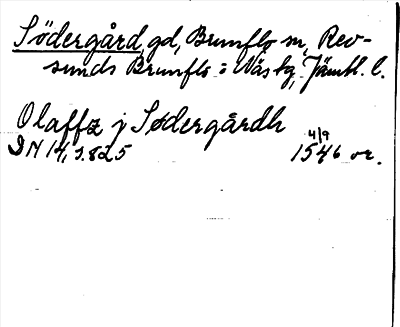 Södergård, gd, Brunflo sn, Rev-
sunds Brunflo o Näs tg, Jämtl. l.
Olaffz j Södergårdh
DN 14, s. 825 4/9 1546 or.